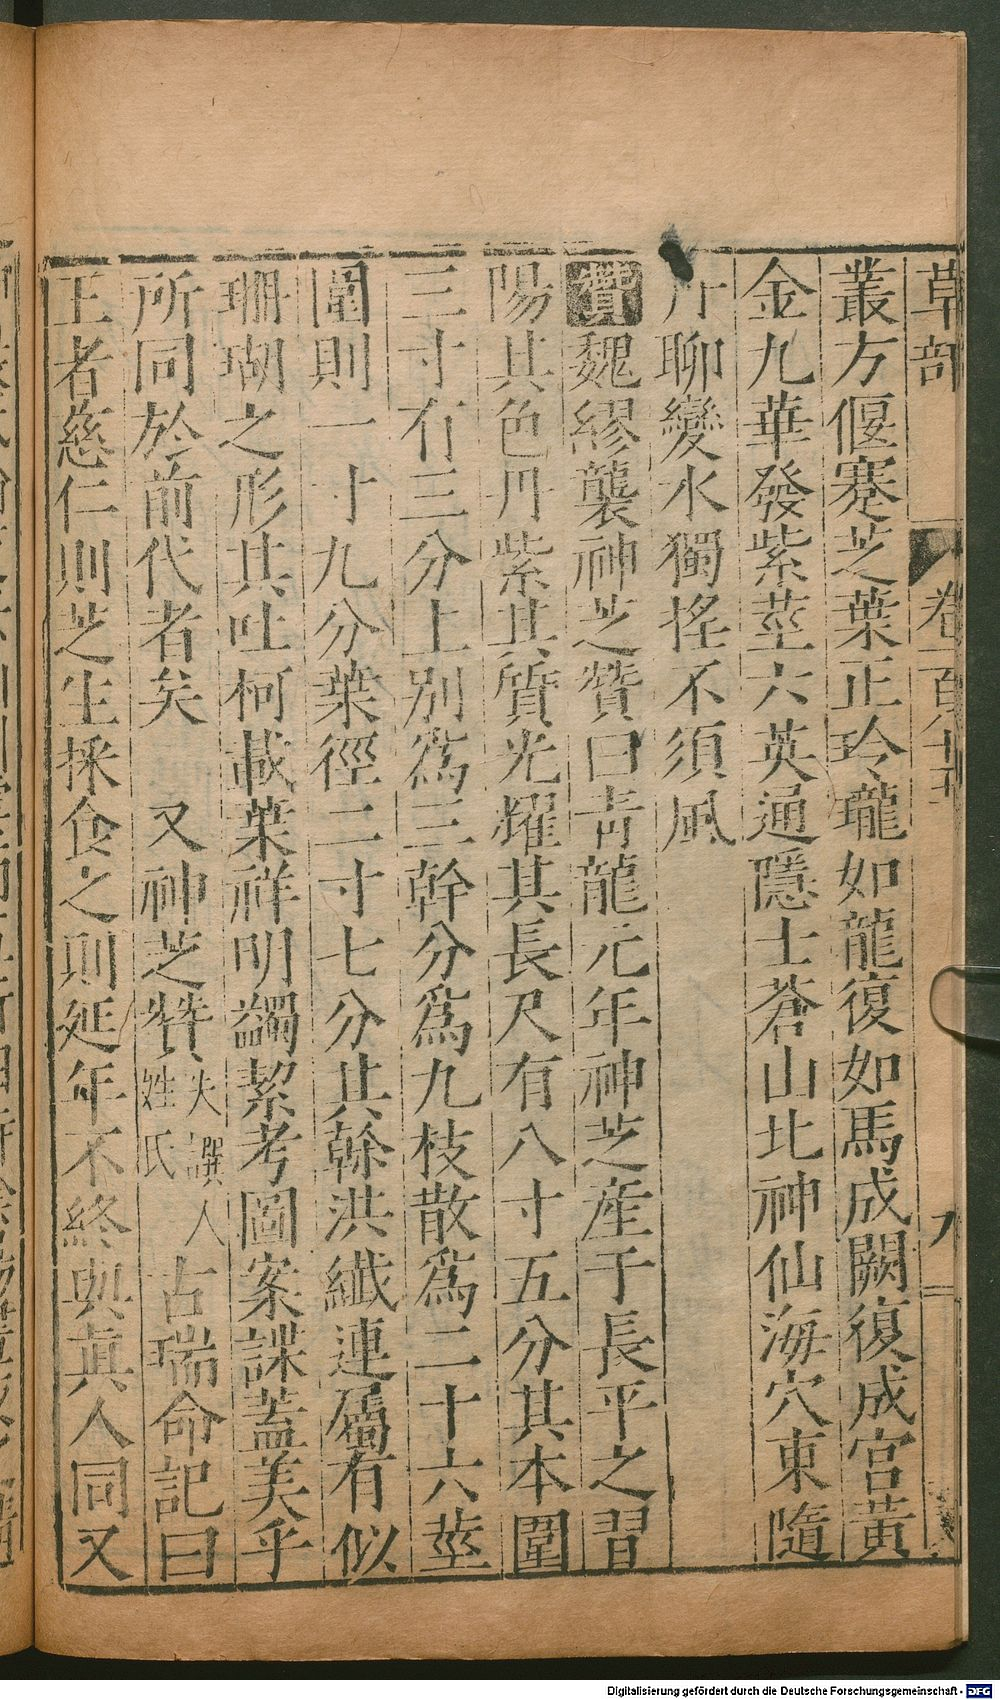 草部 卷一百八十五 九
叢方偃蹇芝葉正玲瓏如龍復如馬成闕復成宮黃
金九華發紫莖六英通隱士蒼山北神仙海穴東隨
斤聊變水獨搖不須風
贊魏繆襲神芝贊曰靑龍元年神芝産于長平之習
陽其色丹紫其質光燿其長尺有八寸五分其本圍
三寸有三分上別爲三幹分爲九枝散爲二十六莖
圍則一寸九分葉徑二寸七分其幹洪纖連屬有似
珊瑚之形其吐柯載葉祥明蠲絜考圖案諜蓋美乎
所同於前代者矣 又神芝贊失撰人姓氏 古瑞命記曰
王者慈仁則芝生採食之則延年不終與眞人同又
Digitalisierung gefördert durch die Deutsche Forschungsgemeinschaft - DFG